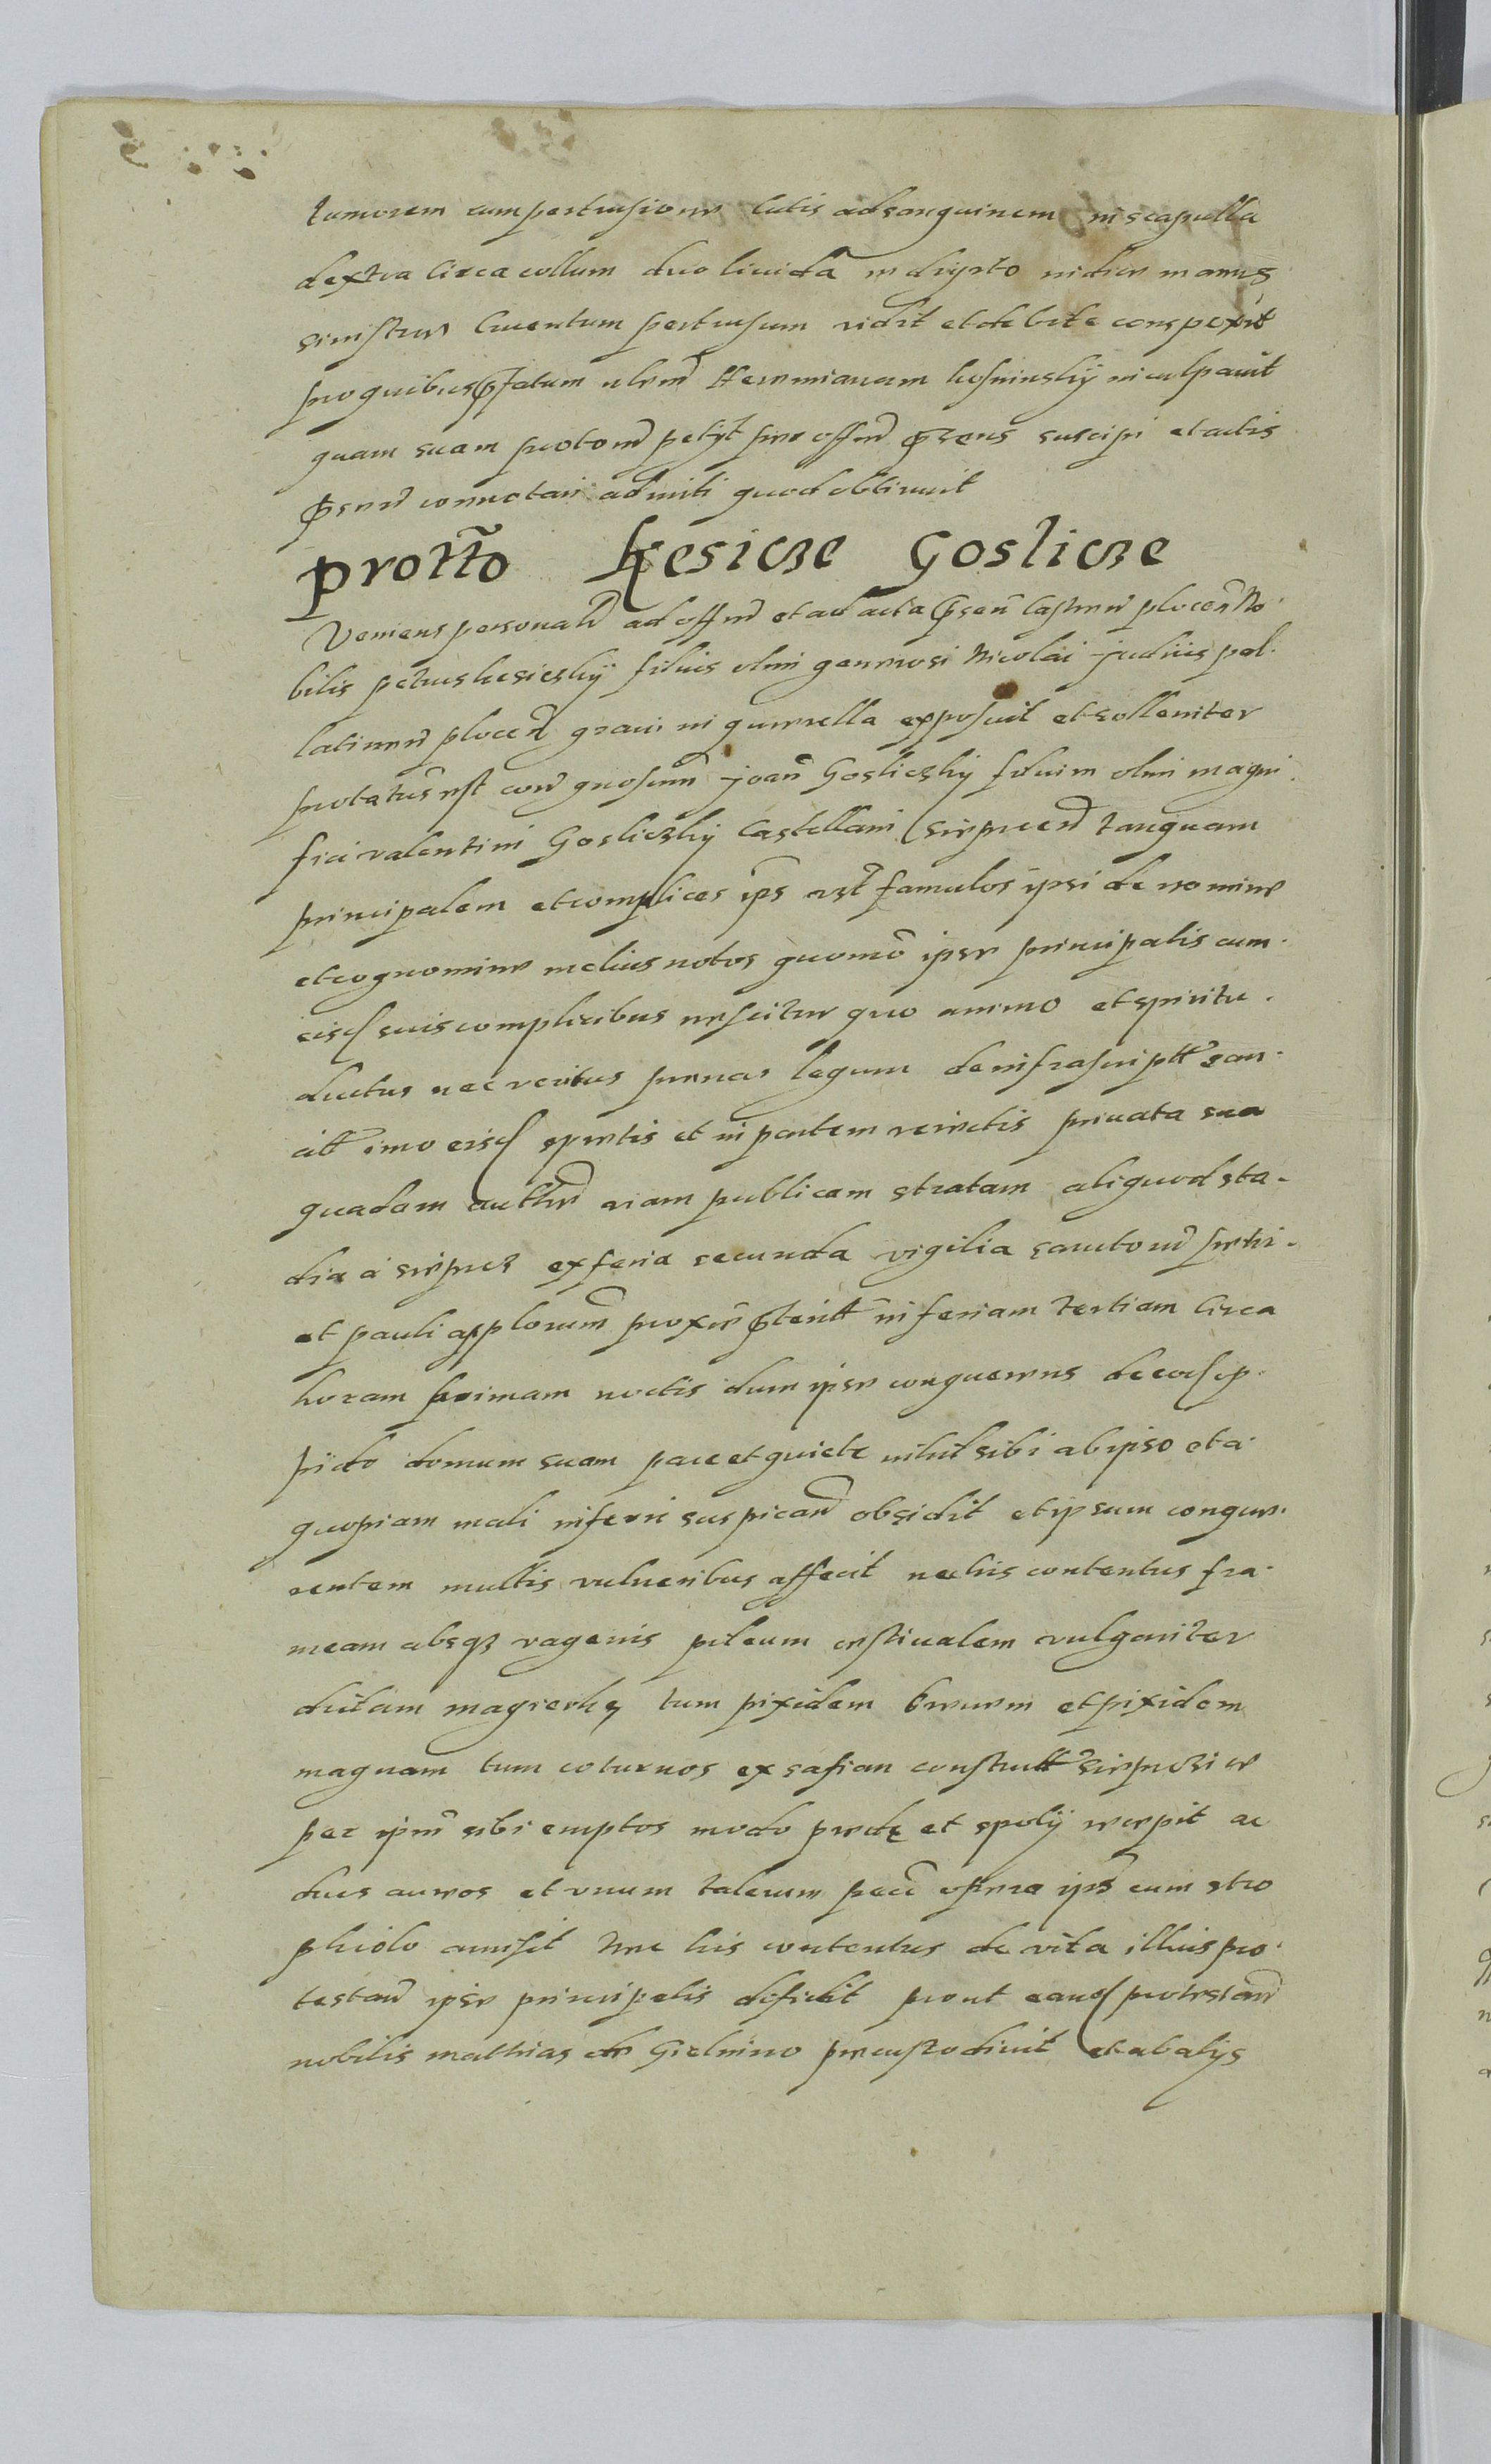 tumorem cum pertusione cutis ad sanguinem in scapulla
dextra circa collum duo livida in digito indice manus
sinistre cruentum pertusum vidit et debite conspexit
pro quibus pfatum nlem Heremianum kosminskÿ inculpavit
quam suam protonem petÿt per offm prens suscipi et actis
psentt connotari admitti quod obtinuit
Protto kesicze Goslicze
Veniens personalr ad offm et ad acta psen Castren plocen No-
bilis petrus kesicskÿ filius olim generosi Nicolai judicis pal-
latinen plocen gravi in querrella exposuit et solleniter
protatus est con gnosum joan GosliczkÿJ filium olim magni-
fici valentini Gosliczkÿ Castellani Sieprcen tanquam
principalem et complices ips ust famulos ipsi de nomine
et cognomine melius notos quomo ipse principalis cum
eisd suis complicibus nescitur quo animo et spiritu
ductus nec veritus penas legum de infrascriptt san-
citt imo eisd spretis et in partem reiectis privata sua
quadam authte viam publicam stratam aliquod sta-
dia a sieprcz ex feria secunda vigilia sanctorum petri
et pauli applorum proxie pteritt in feriam tertiam circa
horam primam noctis dum ipse conquerens de eod op-
pido domum suam pace et quiete nihil sibi ab ipso et a
quopiam mali inferri suspicand obsidit et ipsum conque-
rentem multis vulneribus affecit nec his contentus fra-
meam absqz vagenis pileum estivalem vulgariter
dictam magierkę tum pixidem brevem et pixidem
magnam tum coturnos ex safian constructt sieprczie
per ipm sibi emptos modo prede et spolÿ recepit ac
duos aureos et unum talerum pecc opera ips cum stro
phiolo amisit Nec his contentus de vita illius pro-
testan ipse principalis diffidit prout eand protestan
nobilis mathias de Gielnino precustodivit et ab alÿs